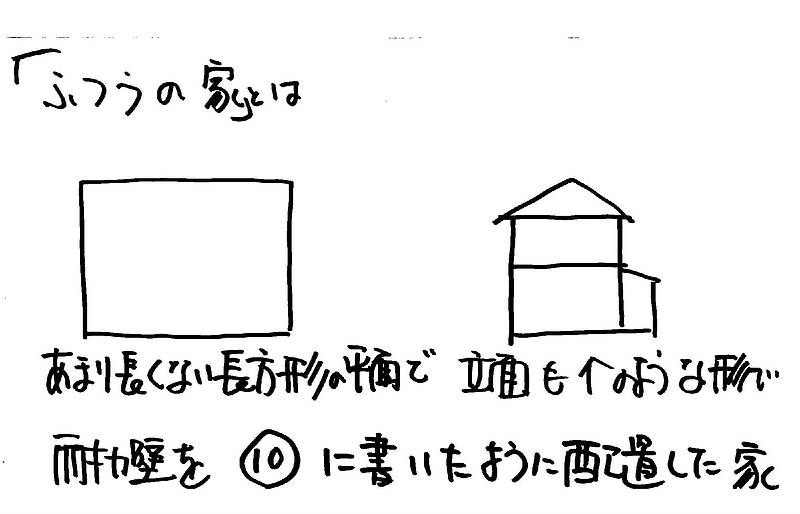 「ふつうの家」とは
あまり長くない長方形の平面で 立面も个のような形で
耐力壁を ⑩ に書いたように配置した家